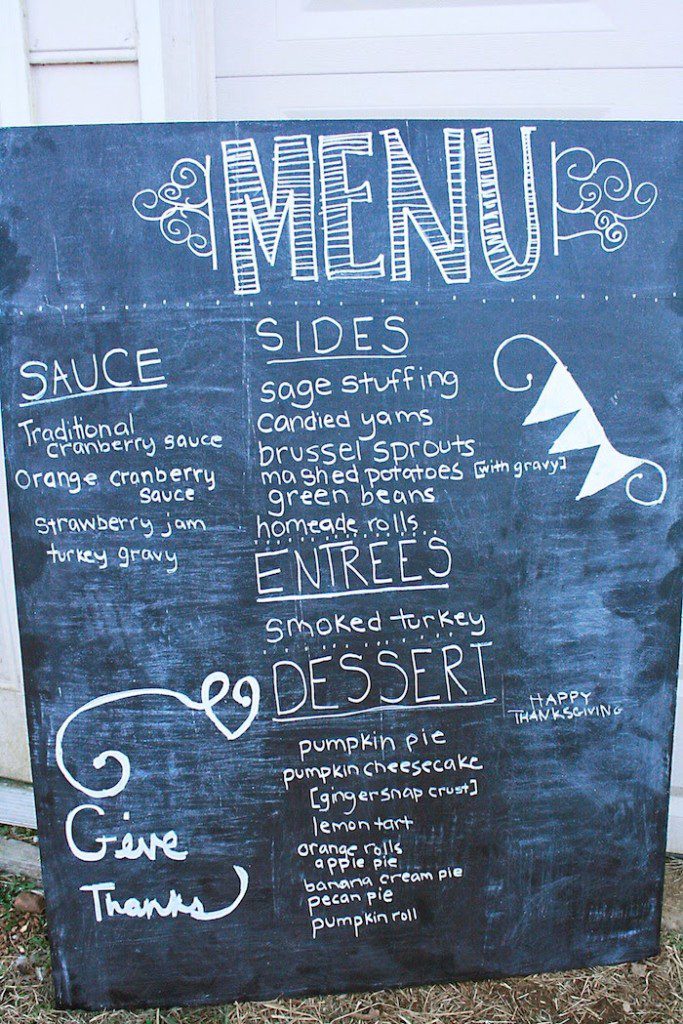 MENU
SAUCE
Traditional
cranberry sauce
Orange cranberry
sauce
strawberry jam
turkey gravy
SIDES
sage stuffing
candied yams
brussel sprouts
mashed potatoes [with gravy]
green beans
homeade rolls
ENTREES
smoked turkey
DESSERT
pumpkin pie
pumpkin cheesecake
[gingersnap crust]
lemon tart
orange rolls
apple pie
banana cream pie
pecan pie
pumpkin roll
HAPPY
THANKSGIVING
Give
Thanks